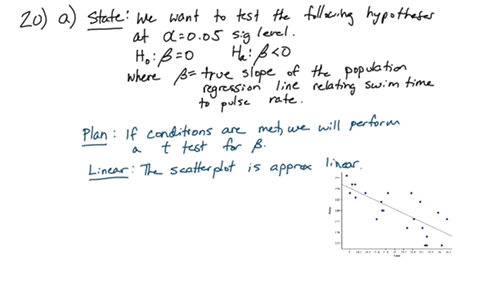 20) a) State: We want to test the following hypotheses
at α=0.05 sig level.
H₀: β=0 Hₐ: β<0
where β= true slope of the population
regression line relating swim time
to pulse rate.
Plan: If conditions are met, we will perform
a t test for β.
Linear: The scatterplot is approx linear.